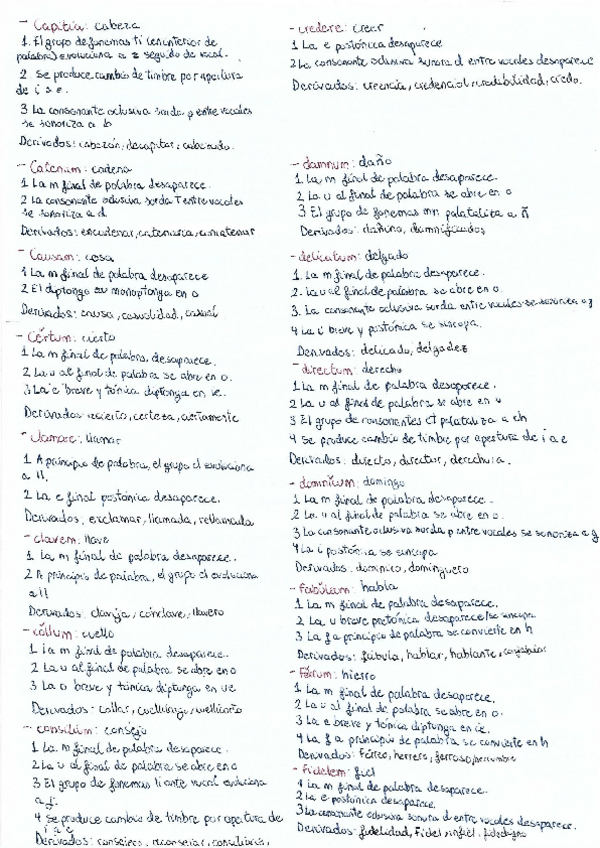 - Capitia: cabeza
1. El grupo de fonemas ti (en interior de
palabra) evoluciona a z seguido de vocal.
2. Se produce cambio de timbre por apertura
de i a e.
3 La consonante oclusiva sorda p entre vocales
se sonoriza a b
Derivados: cabezón, decapitar,
- Catenam: cadena
1 La m final de palabra desaparece.
2 La consonante oclusiva sorda T entre vocales
se sonoriza a d
Derivados: encadenar, catenaria, concatenar
- Causam: cosa
1 La m final de palabra desaparece
2 El diptongo au monoptonga en o
Derivados: causa, casualidad, casual
- Cĕrtum: cierto
1 La m final de palabra, desaparece.
2 La u al final de palabra se abre en o.
3 La e breve y tónica diptonga en ie.
Derivados: acierto, certeza, ciertamente
- clamare: llamar
1 A principio de palabra, el grupo cl evoluciona
a ll.
2 La e final postónica desaparece.
Derivados: exclamar, llamada,
- clavem: llave
1 La m final de palabra desaparece.
2 A principio de palabra, el grupo cl evoluciona
a ll
Derivados: clavija, cónclave, llavero
- cŏllum: cuello
1 La m final de palabra desaparece.
2 La u al final de palabra se abre en o
3 La o breve y tónica diptonga en ue
Derivados: collar,
- consilium: consejo
1 La m final de palabra desaparece.
2 La u al final de palabra se abre en o
3 El grupo de fonemas li ante vocal evoluciona
a j.
4 Se produce cambio de timbre por apertura de
i a e
Derivados: consejero, aconsejar,
- credere: creer
1 La e postónica desaparece
2 La consonante oclusiva sonora d entre vocales desaparece
Derivados: creencia, credencial, credibilidad, credo.
- damnum: daño
1 La m final de palabra desaparece.
2 La u al final de palabra se abre en o
3 El grupo de fonemas mn palataliza a ñ
Derivados: dañino, damnificados
- delicatum: delgado
1. La m final de palabra desaparece.
2. La u al final de palabra se abre en o.
3. La consonante oclusiva sorda entre vocales se sonoriza a g
4 La i breve y postónica se síncopa.
Derivados: delicado, delgadez
- directum: derecho
1 La m final de palabra desaparece.
2 La u al final de palabra se abre en
3 El grupo de consonantes ct palataliza a ch
4 Se produce cambio de timbre por apertura de i a e
Derivados: directo, director, derechura.
- dominicum: domingo
1 La m final de palabra desaparece.
2 La u al final de palabra se abre en o.
3 La consonante oclusiva sorda p entre vocales se sonoriza a g
4 La i postónica se síncopa
Derivados: dominico, dominguero
- fabulam: habla
1 La m final de palabra desaparece.
2 La u breve pretónica desaparece/se síncopa
3 La f a principio de palabra se convierte en h
Derivados: fábula, hablar, hablante,
- fĕrrum: hierro
1 La m final de palabra desaparece.
2 La u al final de palabra se abre en o.
3 La e breve y tónica diptonga en ie.
4 La f a principio de palabra se convierte en h
Derivados: férreo, herrero, ferroso,
- fidelem: fiel
1 La m final de palabra desaparece.
2 La e postónica desaparece.
3 La consonante oclusiva sonora d entre vocales desaparece.
Derivados: fidelidad, Fidel, infiel, fidedigno